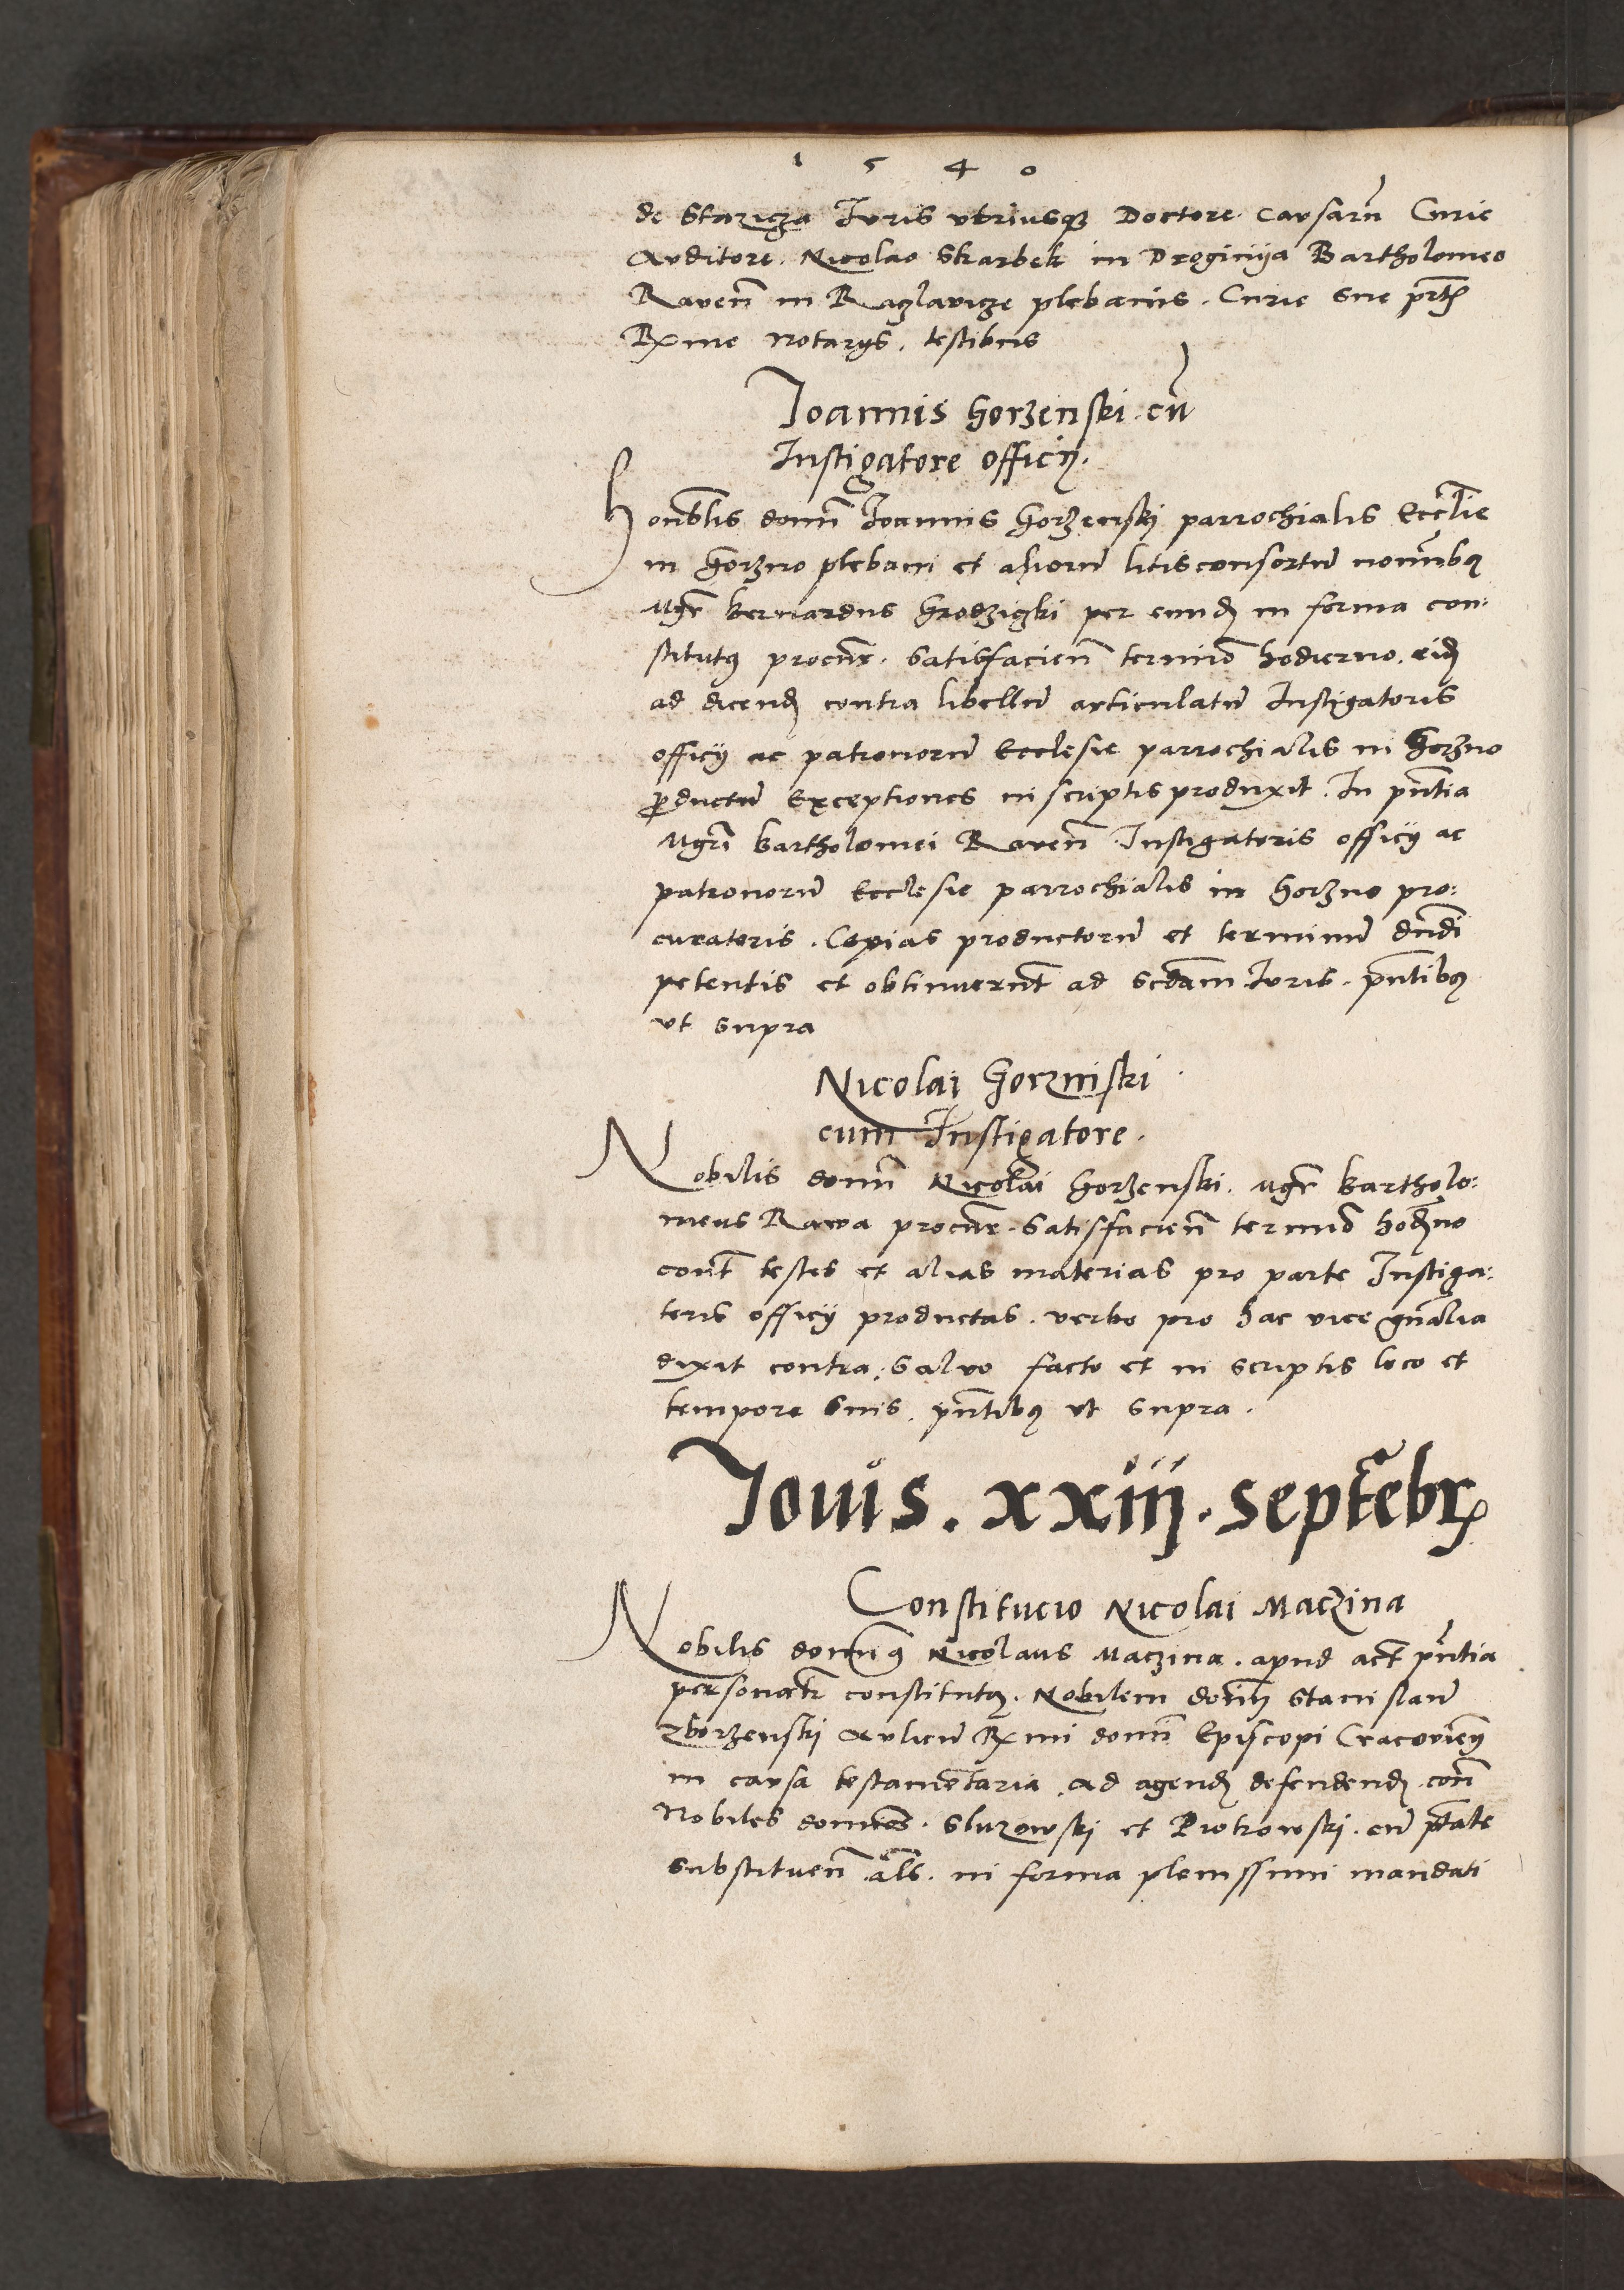 1540
de Staricza Juris vtriusqȝ Doctore Causarũ Curie
Auditore. Nicolao Skarbek in Droginya Bartholomeo
Ravenñ in Raczlavicze plebanis. Curie sue prt͠
Rx͠me notarijs. testibus
Joannis Gorzenski. cũ
Instigatore officij.
Honẽblis domñ Joannis Gorzenski parrochialis Eccl̃ie
in Gorzno plebani et aliorũ litisconsortũ nomĩbꝰ
Mgr̃ bernardus Grodziczki per eund̃ in forma con:
stitutꝰ procur̃. Satisfacieñ termĩo hodierno. eid̃
ad dicend̃ contra libellũ articulatũ Instigatoris
officij ac patronorũ Ecclesie parrochialis in Gorzno
ꝓductũ Exceptiones in scriptis produxit. In pñtia
Mgrĩ bartholomei Raveñ Instigatoris officij ac
patronorũ Ecclesie parrochialis in Gorzno pro:
curatoris. Copias productorũ et terminũ dñdi
petentis et obtinuerũt ad sedãm Juris. pñtibꝰ
vt supra
Nicolai Gorzniski
cum Instigatore.
Nobilis domñ Nicolai Gorzenski. Mgr̃ bartholo:
meus Rawa procur̃. Satisfacieñ termĩo hod̃no
cont̃ testes et alias materias pro parte Instiga:
toris officij productas. verbo pro hac vice gñalia
dixit contra, salvo facto et in scriptis loco et
tempore suis. pñtibꝰ vt supra.
Jouis. xxiij. septẽbrꝭ
Constitucio Nicolai Maczina
Nobilis domĩnꝰ Nicolaus Maczina. apud act̃ pñtia
personalr̃ constitutꝰ. Nobilem domĩnũ Stanislaũ
Zborzenski Aulicũ Rx͠mi domñ Episcopi Cracovieñ
in causa testamẽtaria. ad agend̃ defendend̃. con̄
Nobiles domĩos. Sluzowski et Piotrowski. cũ ptãte
substitueñ. al̃s. in forma plenissimi mandati